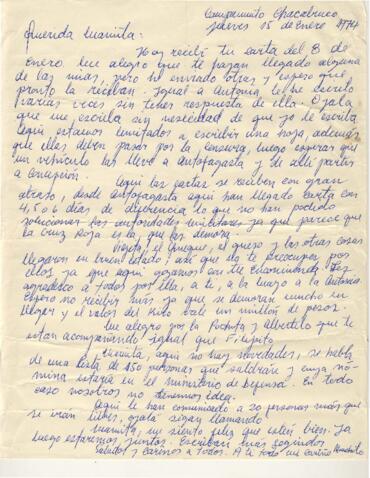 Campamento Chacabuco
Jueves 15 de Enero 1974
Querida Mamita:
Hoy recibí tu carta del 8 de
Enero. Me alegro que te hayan llegado algunas
de las mías, pero he enviado otras y espero que
pronto la reciban. Igual a Antonia, le he escrito
varias veces sin tener respuesta de ella. Ojala
que me escriba sin necesidad de que yo le escriba
Aquí estamos limitados a escribir una hoja, además
que ellas deben pasar por la censura, luego esperar que
un vehículo las lleve a Antofagasta y de allí partir
a Concepción.
Aquí las cartas se reciben con gran
atraso, desde Antofagasta aquí han llegado cartas con
4, 5 o 6 días de diferencia lo que no han podido
solucionar las autoridades militares ya que parece que
la Cruz Roja es la que las demora.
Viejita, el queque, el queso y las otras cosas
llegaron en buen estado, así que no te preocupes por
ellos ya que aquí gozamos con tu encomienda. Les
agradezco a todos por ella, a ti, a la y a la Antonia
Espero no recibir más ya que se demoran mucho en
llegar y el valor del Kilo vale un millón de pesos.
Me alegro por la Pochita y Albertito que te
están acompañando igual que Felipito
Mamita, aquí no hay novedades, se habla
de una lista de 150 personas que saldrían y cuya nó-
mina estaría en el ministerio de Defensa. En todo
caso nosotros no tenemos idea.
Aquí le han comunicado a 20 personas más que
se irán libres, ojala sigan llamando
Mamita, me siento feliz que estén bien. Ya
luego estaremos juntos. Escriban más seguido
Saludos y cariños a todos. A ti todo mi cariño